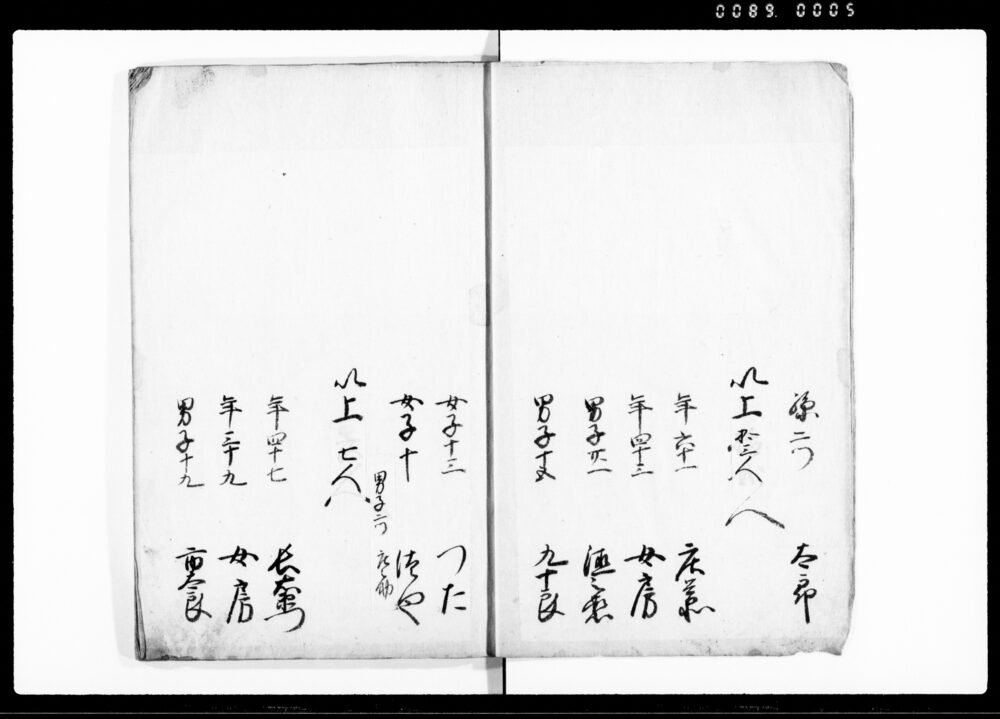 0089 0005
孫 二つ 太郎
以上 人
年 六十一 庄蔵
年 四十三 女房
男子 廿一
男子 十五 九十良
女子 十三 つた
女子 十
男子 二つ 庄助
以上 七人
年 四十七
年 三十九 女房
男子 十九 市太良